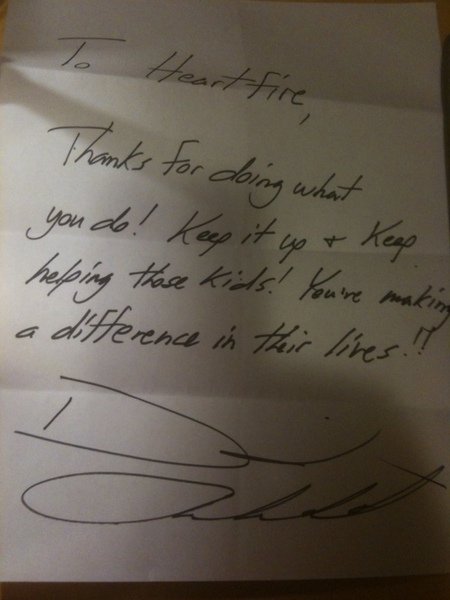 To Heartfire,
Thanks for doing what
you do! Keep it up + Keep
helping those kids! You're making
a difference in their lives!!